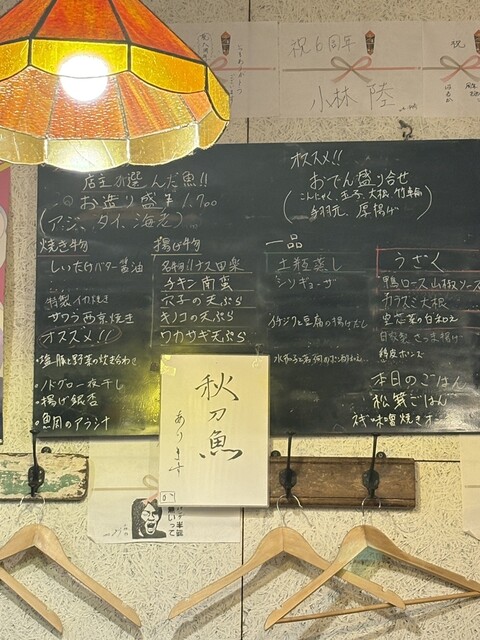 祝6周年
小林 陸
祝
店主が選んだ魚!!
お造り盛 ¥1,700
(アジ、タイ、海老)
オススメ!!
おでん盛り合せ
(こんにゃく、玉子、大根、竹輪
手羽元、厚揚げ)
焼き物
しいたけバター醤油
特製イカ焼き
サワラ西京焼き
オススメ!!
・塩豚と野菜の炊き合わせ
・ノドグロ一夜干し
・揚げ銀杏
・魚のアラ汁
揚げ物
名物!!ナス田楽
チキン南蛮
穴子の天ぷら
キノコの天ぷら
ワカサギ天ぷら
一品
土瓶蒸し
シソギョーザ
イチジクと豆腐の揚げだし
うざく
鴨ロース山椒ソース
カラスミ大根
空芯菜の白和え
自家製さつま揚げ
本日のごはん
松茸ごはん
秋刀魚
あります